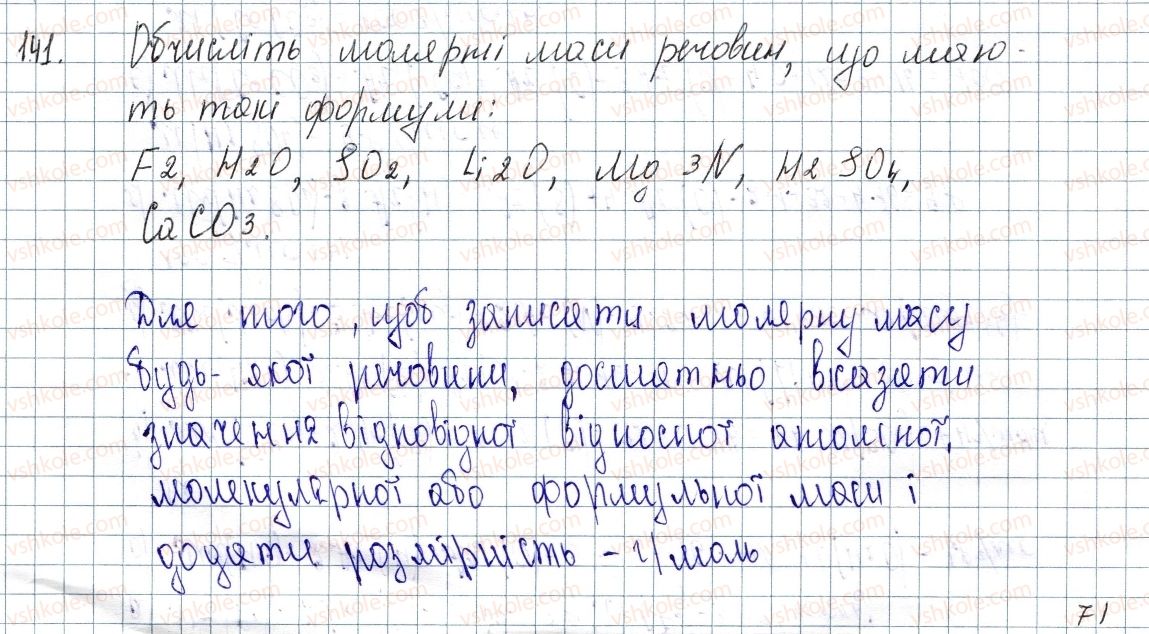 141. Обчисліть молярні маси речовин, що маю-
ть такі формули:
F2, H2O, SO2, Li2O, Mg 3N, H2SO4,
CaCO3.
Для того, щоб записати молярну масу
будь-якої речовини, достатньо вказати
значення відповідної відносної атомної,
молекулярної або формульної маси і
додати розмірність - г/моль
71